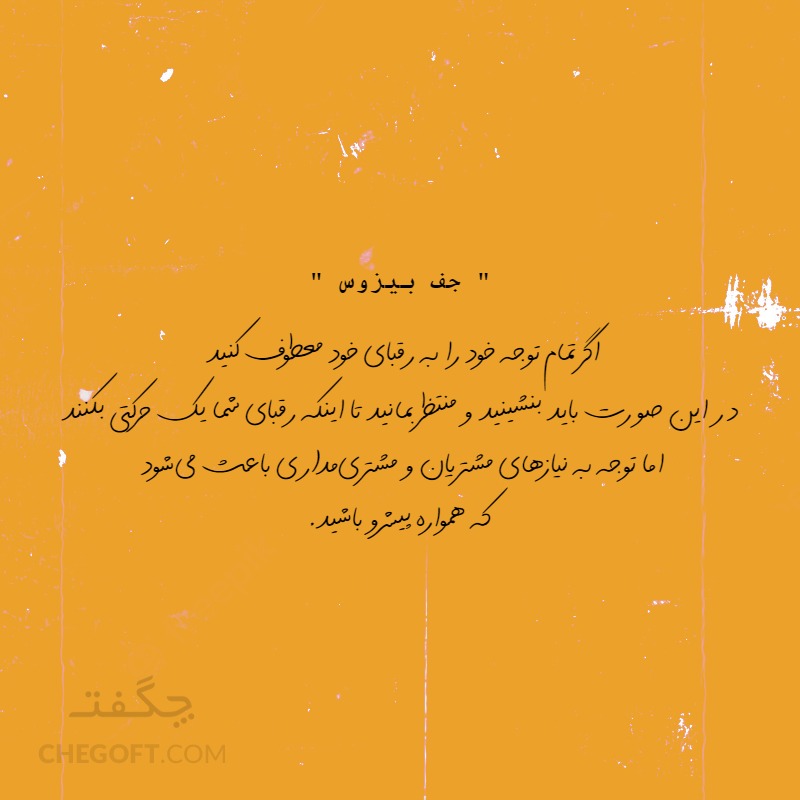 " جف بیزوس "
اگر تمام توجه خود را به رقبای خود معطوف کنید
در این صورت باید بنشینید و منتظر بمانید تا اینکه رقبای شما یک حرکتی بکنند
اما توجه به نیازهای مشتریان و مشتری‌مداری باعث می‌شود
که همواره پیشرو باشید.
چگفتــ
CHEGOFT.COM